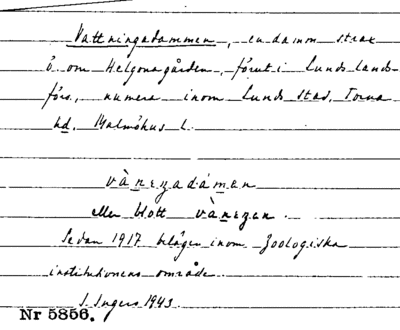 Vattningadammen, en damm strax
ö. om Helgonagården, förut i Lunds lands-
förs., numera inom Lunds stad, Torna
hd, Malmöhus l.
vànezadámen
eller blott vànezen.
Sedan 1917 belägen inom Zoologiska
institutionens område.
I. Ingers 1943
Nr 5856.